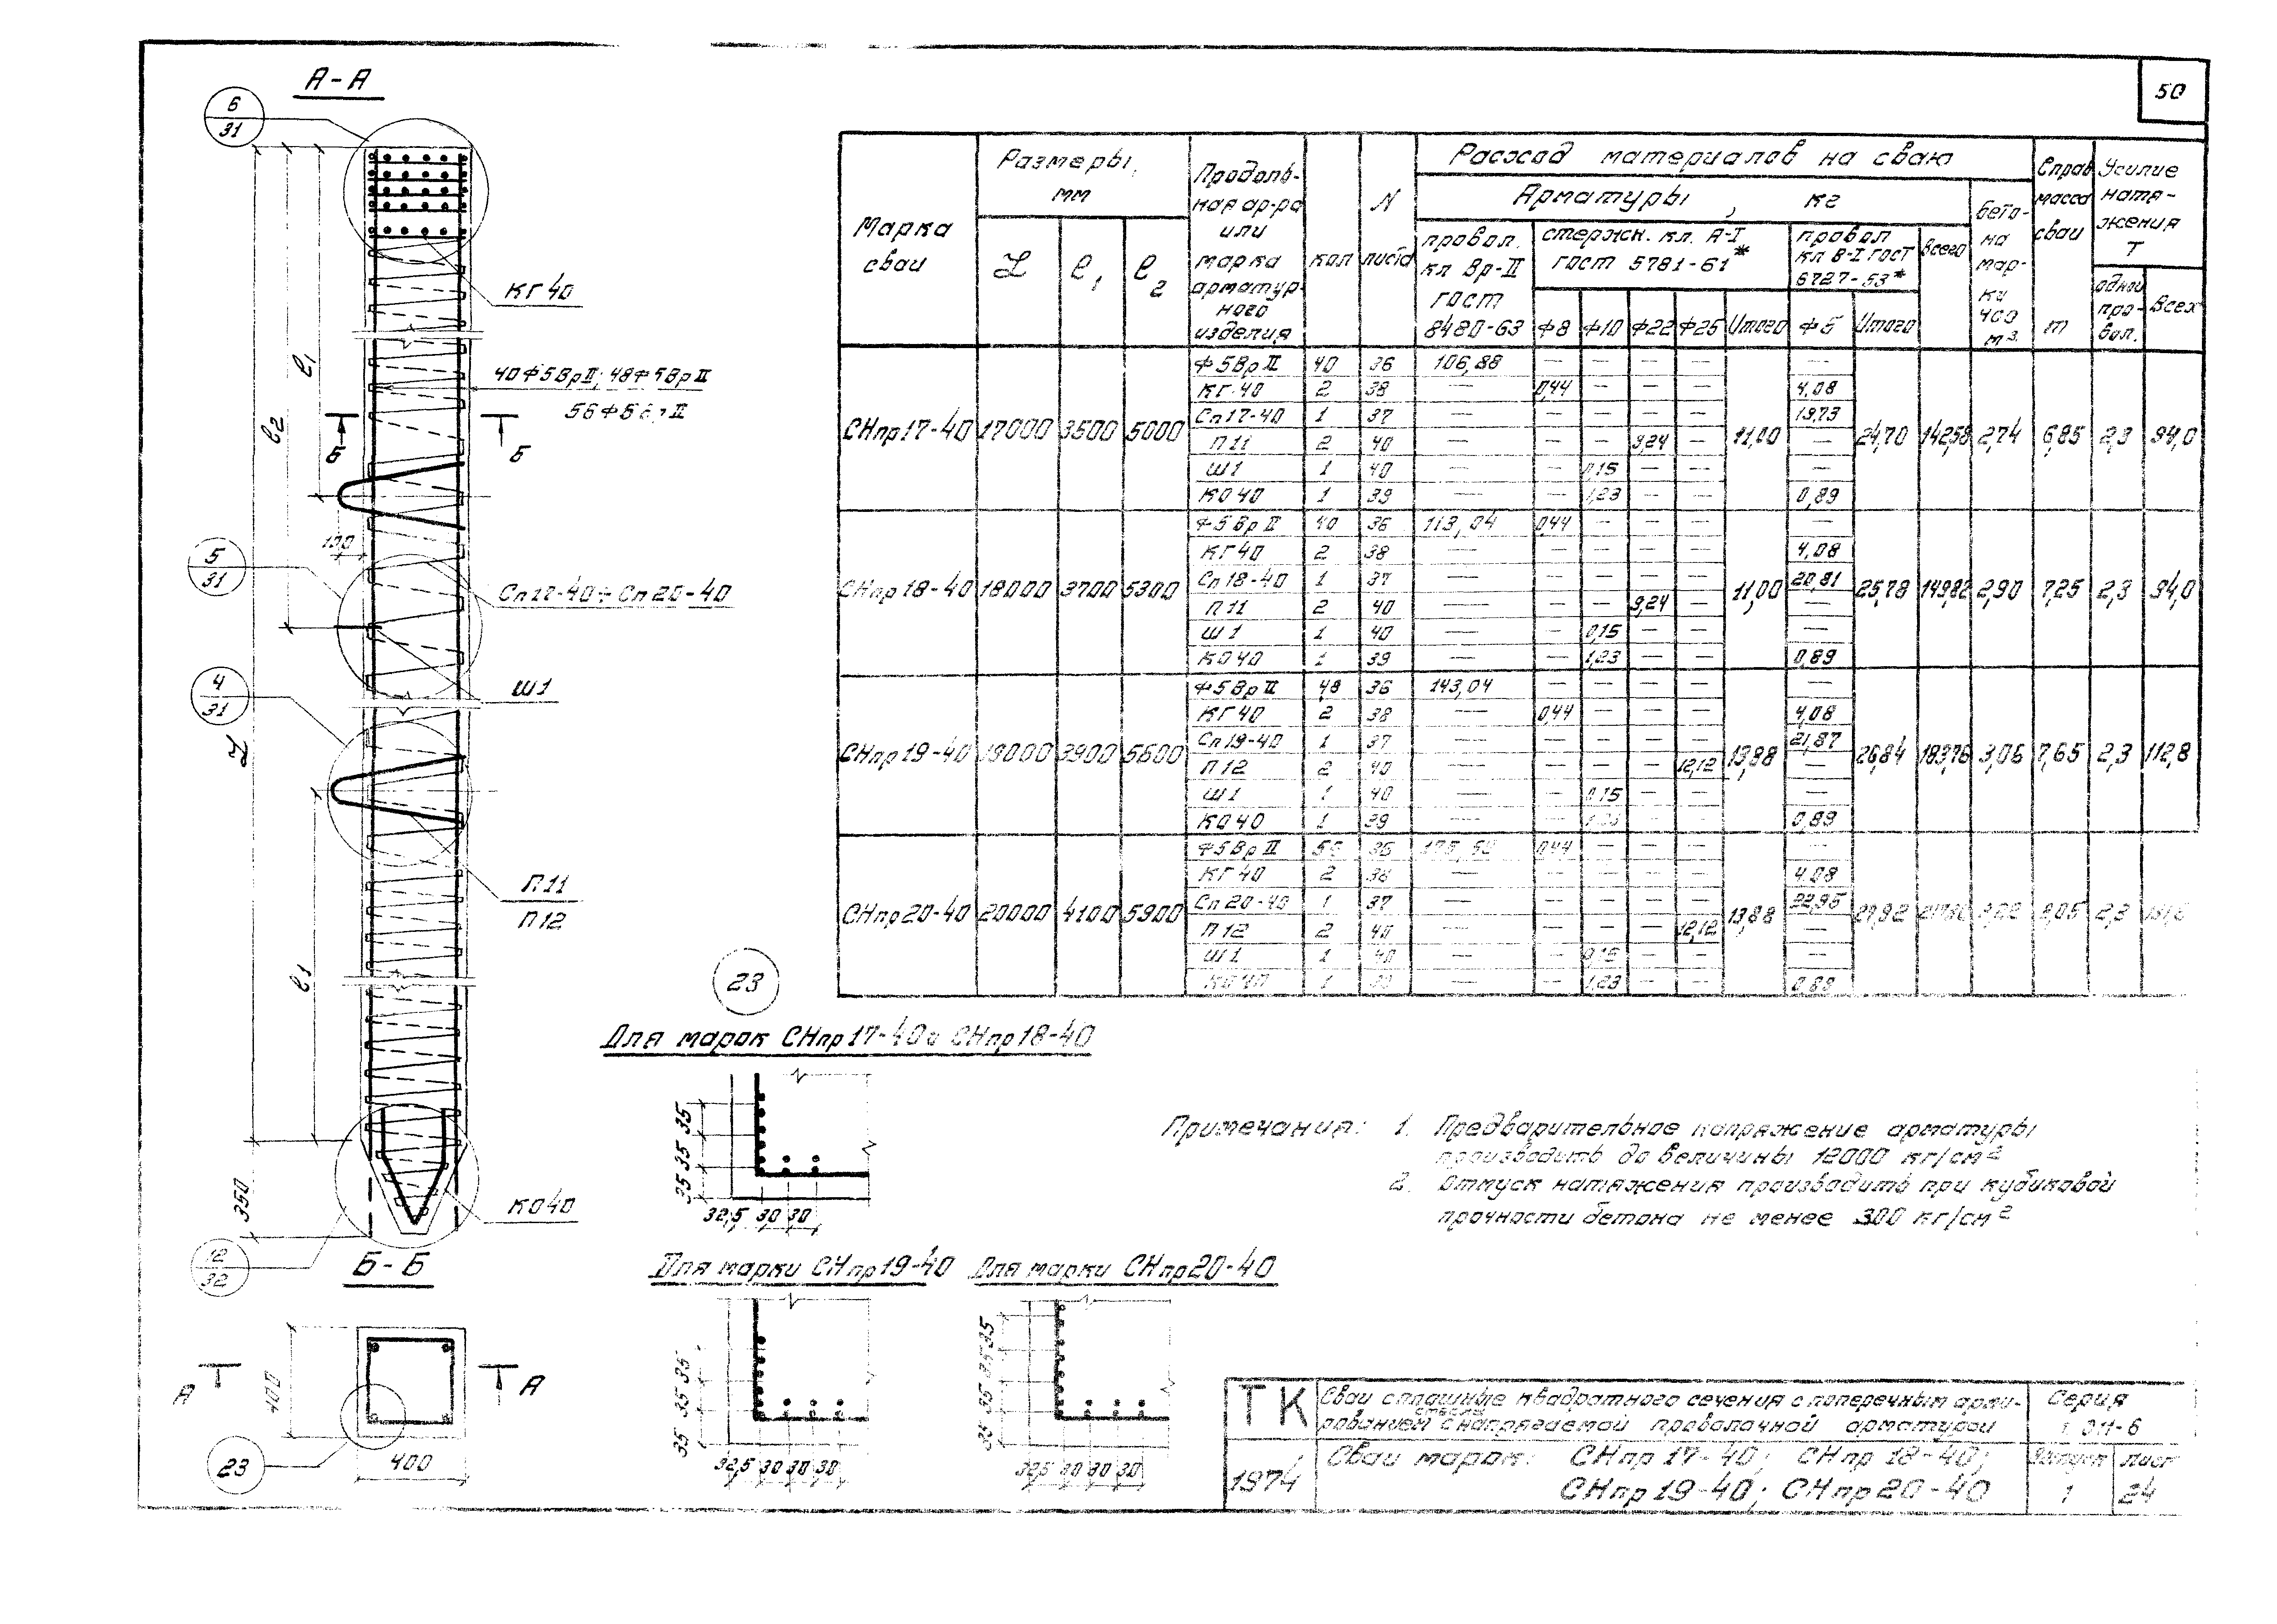 50
А-А
6
31
КГ40
40Ф5ВрII; 48Ф5ВрII
l1
l2
Б
Б
5
31
Сп17-40÷Сп20-40
4
31
Ш1
L
П11
П12
l1
350
КО40
12
32
Б-Б
А
А
400
400
23
Марка сваи
Размеры, мм
L
l1
l2
Продольная ар-ра или марка арматурного изделия
кол
N листа
Расход материалов на сваю
Арматуры, кг
провол. кл Вр-II ГОСТ 8480-63
стержн. кл. А-I ГОСТ 5781-61*
Ф8 Ф10 Ф22 Ф25 Итого
провол кл В-I ГОСТ 6727-53*
Ф5 Итого
Всего
Справ масса сваи т
Усилие натяжения Т
одной провол.
Всех
СНпр17-40 17000 3500 5000
Ф5ВрII 40 36 106,88 — — — — —
КГ-40 2 38 — 0,44 — — — 4,08
Сп17-40 1 37 — — — — — 19,73
П11 2 40 — — — 9,24 — —
Ш1 1 40 — — 0,15 — — —
КО40 1 39 — — 1,23 — — 0,89
11,00 24,70 142,58 2,74 6,85 2,3 94,0
СНпр18-40 18000 3700 5300
Ф5ВрII 40 36 113,04 0,44 — — — —
КГ40 2 38 — — — — — 4,08
Сп18-40 1 37 — — — — — 20,81
П11 2 40 — — — 9,24 — —
Ш1 1 40 — — 0,15 — — —
КО40 1 39 — — 1,23 — — 0,89
11,00 25,78 149,82 2,90 7,25 2,3 94,0
СНпр19-40 19000 3900 5600
Ф5ВрII 48 36 143,04 — — — — —
КГ40 2 38 — 0,44 — — — 4,08
Сп19-40 1 37 — — — — — 21,87
П12 2 40 — — — — 12,12 —
Ш1 1 40 — — 0,15 — — —
КО40 1 39 — — — — 0,89
13,88 26,84 183,76 3,06 7,65 2,3 112,8
СНпр20-40 20000 4100 5900
Ф5ВрII 56 36 0,44 — — — —
КГ40 2 38 — — — — — 4,08
Сп20-40 1 37 — — — — — 22,95
П12 2 40 — — — — 12,12 —
Ш1 1 40 — — 0,15 — — —
КО40 1 39 — — 1,23 — — 0,89
13,88 2,3
23
Для марок СНпр17-40 и СНпр18-40
35 35 35
32,5 30 30
Для марки СНпр19-40
35 35 35
32,5 30 30 30
Для марки СНпр20-40
35 35 35 35
32,5 30 30 30
Примечания: 1. Предварительное напряжение арматуры
производить до величины 12000 кг/см2
2. Отпуск натяжения производить при кубиковой
прочности бетона не менее 300 кг/см2
ТК
1974
Сваи сплошные квадратного сечения с поперечным арми-
рованием ствола с напрягаемой проволочной арматурой
Сваи марок: СНпр 17-40; СНпр 18-40;
СНпр 19-40; СНпр 20-40
Серия
1.011-6
Выпуск
1
Лист
24